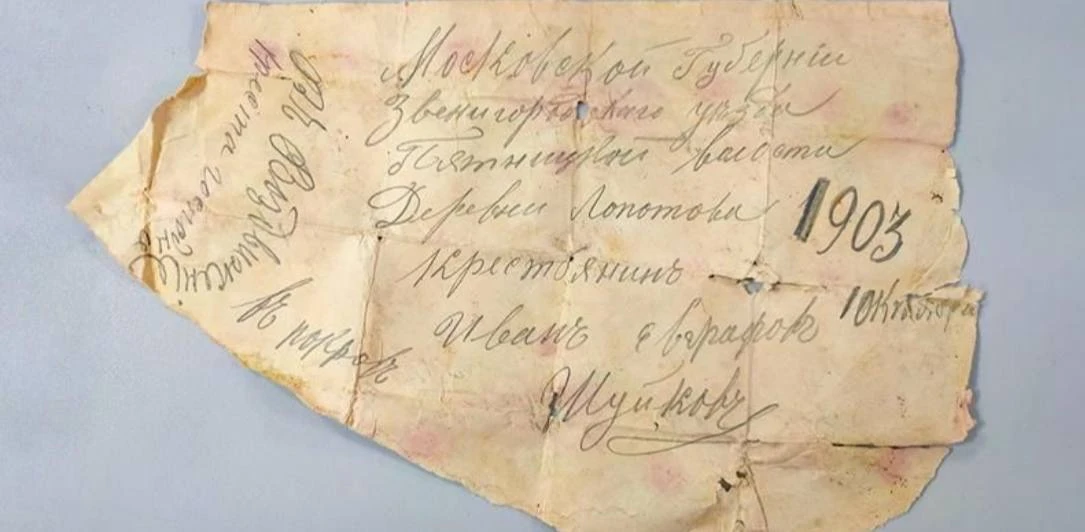 Московской Губернiи
Звенигородскаго уѣзда
Пятницкой волости
Деревни Лопотова
крестьянинъ
Иванъ Евграфовъ
Шуйковъ
1903
1 Октября
въ покровъ
Воздвижен
креста господня